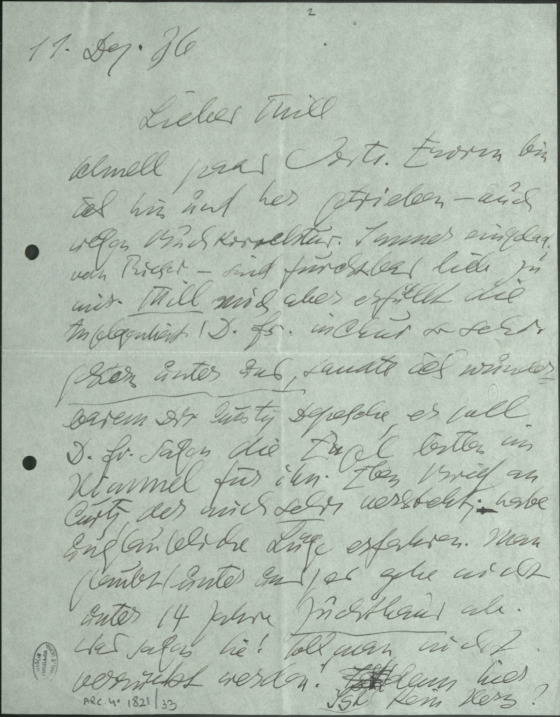 2
11. Dez. 36
Lieber Thill
schnell paar Worte. Enorm bin
ich hin und her getrieben – auch
wegen Buchkorrektur. Immer
von – sind furchtbar lieb zu
mir. Thill mich aber erfüllt die
Angelegenheit D. Fr. in Chur so sehr.
unter uns, sandte ich
barem Depesche, er soll
D. Fr. sagen die Engel beten im
Himmel für ihn. Eben Brief an
der mich sehr versteht; habe
unglaubliche Lüge erfahren. Man
glaubt (unter uns) es gehe nicht
unter 14 Jahre Zuchthaus ab.
Was sagen Sie! Soll man nicht
verrückt werden! denn hier
Ist kein Herz?
ARC. 4° 1821/33